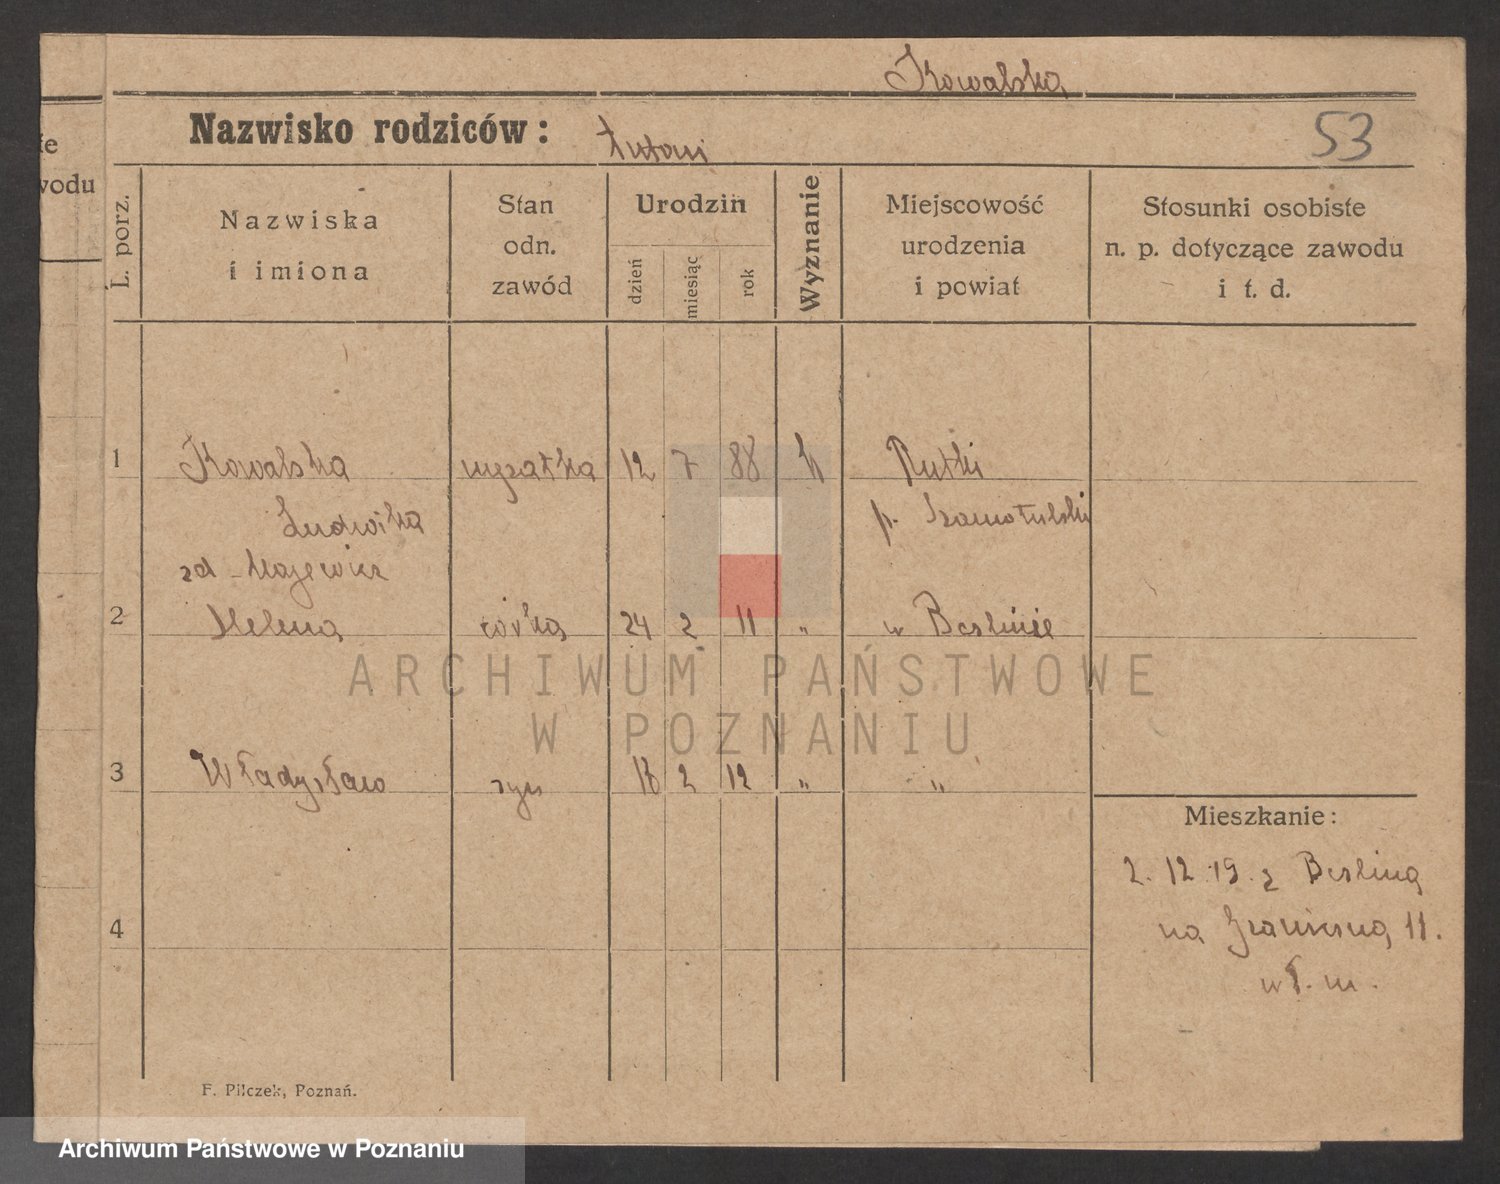 Kowalska
53
Nazwisko rodziców:
te
wodu
L. porz.
Nazwiska
i imiona
Stan
odn.
zawód
Urodzin
dzień
miesiąc
rok
Wyznanie
Miejscowość
urodzenia
i powiat
Stosunki osobiste
n. p. dotyczące zawodu
i t. d.
1 Kowalska 12 7 88 Rutki
Ludwika p. Szamotulski
zd Majewicz
2 Helena córka 24 2 11 " w Berlinie
ARCHIWUM PAŃSTWOWE
W POZNANIU
3 Władysław syn 18 2 12 " "
Mieszkanie:
2. 12. 19. z Berlina
na Graniczną 11.
wł. m.
4
F. Pilczek, Poznań.
Archiwum Państwowe w Poznaniu